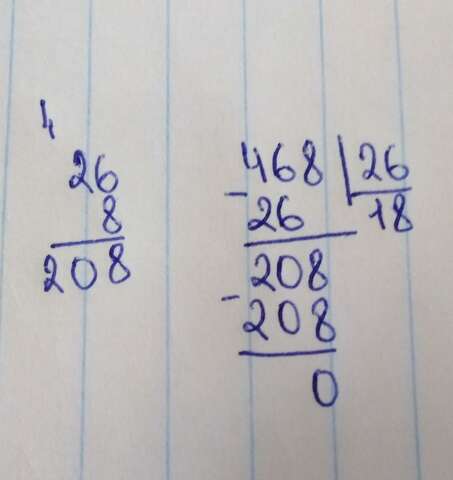 4
26
8
208
468 26
- 26 18
208
- 208
0